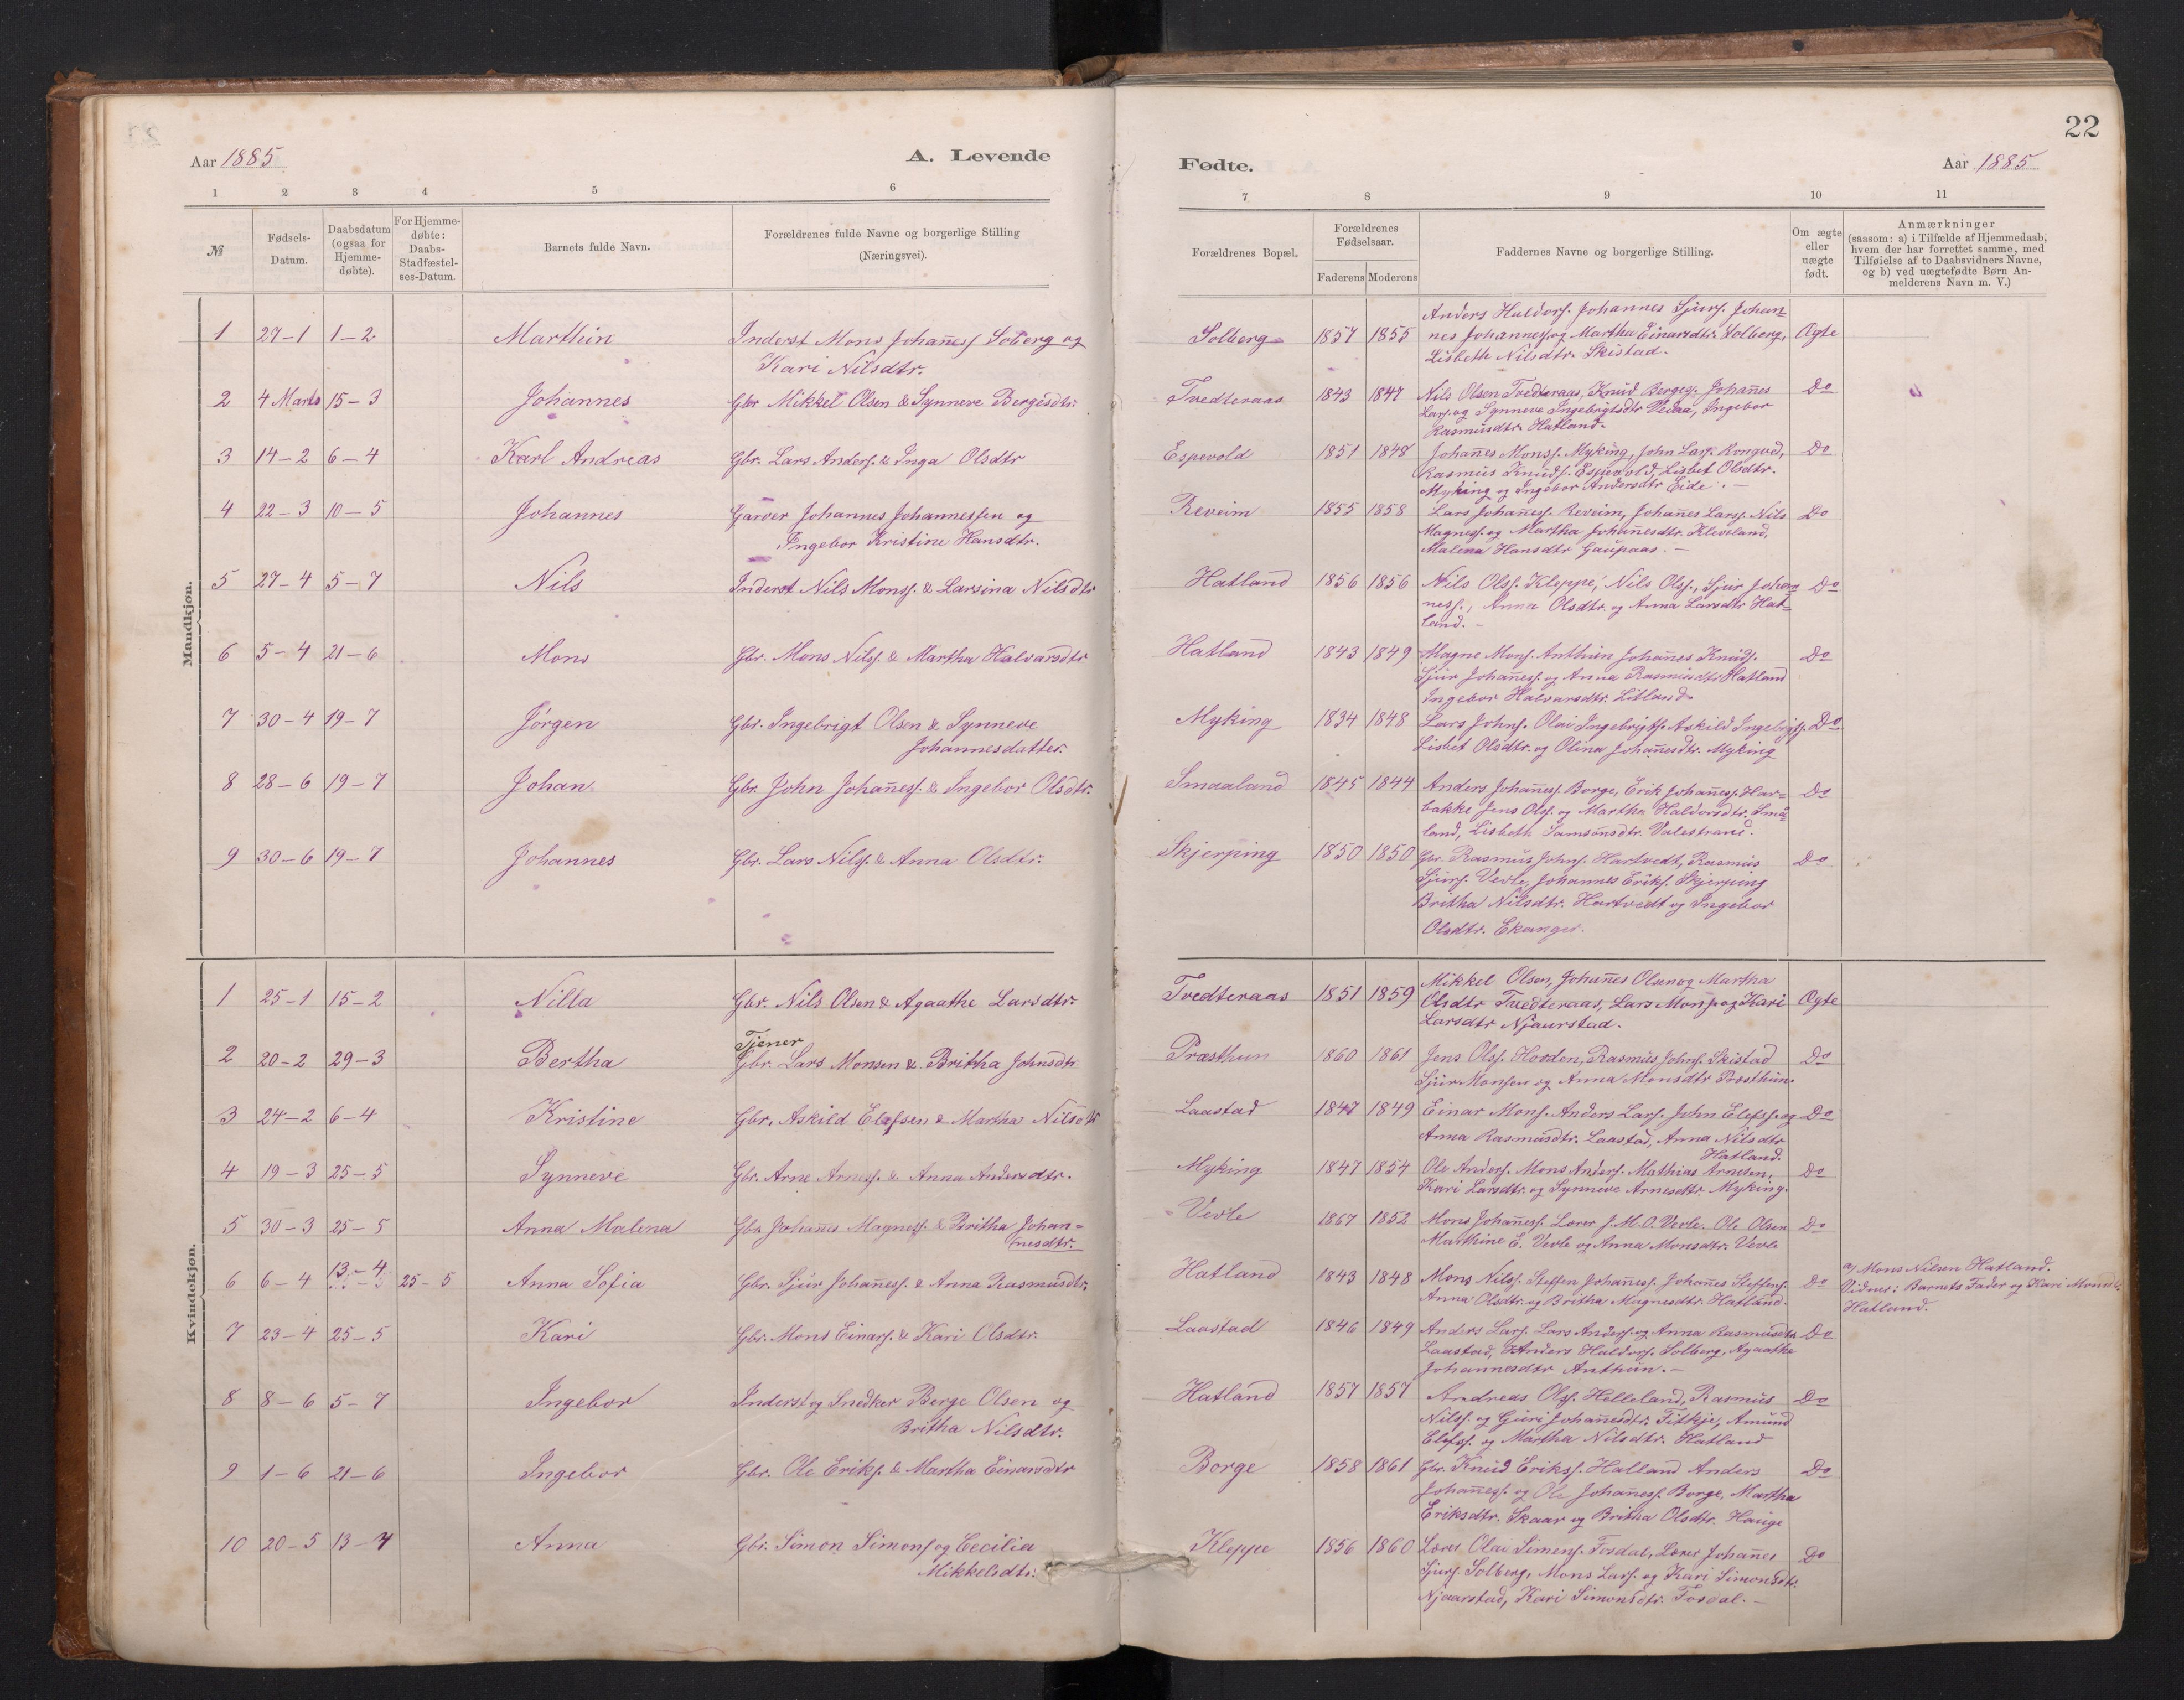 22
Aar 1885
A. Levende
Fødte.
Aar 1885
1 2 3 4 5 6
7 8 9 10 11
№
Fødsels-Datum.
Daabsdatum (ogsaa for Hjemme-døbte).
For Hjemme-døbte: Daabs-Stadfæstel-ses-Datum.
Barnets fulde Navn.
Forældrenes fulde Navne og borgerlige Stilling (Næringsvei).
Forældrenes Bopæl.
Forældrenes Fødselsaar.
Faderens Moderens
Faddernes Navne og borgerlige Stilling.
Om ægte eller uægte født.
Anmærkninger
(saasom: a) i Tilfælde af Hjemmedaab,
hvem der har forrettet samme, med
Tilføielse af to Daabsvidners Navne,
og b) ved uægtefødte Børn An-
melderens Navn m. V.)
Mandkjøn.
1 27-1 1-2 Marthin Inderst Mons Johanness Solberg og
Kari Nilsdtr.
Solberg 1857 1855
Anders Haldors. Johannes Sjurs. Johan-
nes Johanness og Martha Einarsdtr. Solberg,
Lisbeth Nilsdtr. Skistad.
Ægte
2 4 Marts 15-3 Johannes Gbr Mikkel Olsen & Synneve Bergesdtr.
Tvedteraas 1843 1847
Nils Olsen Tvedteraas, Knud Berges. Johannes
Lars. og Synneve Ingebrigtsdtr Vedaa, Ingebor
Rasmusdtr. Hatland.
Do
3 14-2 6-4 Karl Andreas Gbr. Lars Anders. & Inga Olsdtr
Espevold 1851 1848
Johannes Monss. Myking, John Lars. Rongved,
Rasmus Knuds. Espevold, Lisbet Olsdtr.
Myking og Ingebor Andersdtr Eide.-
Do
4 22-3 10-5 Johannes Garver Johannes Johannessen og
Ingebor Kristine Hansdtr.
Reveim 1855 1858
Lars Johannes. Reveim, Johannes Larss. Nils
Magness. og Martha Johannesdtr. Kleveland,
Malena Hansdtr Gaupaas.-
Do
5 27-4 5-7 Nils Inderst Nils Monss. & Larsina Nilsdtr
Hatland 1856 1856
Nils Olss. Kleppe, Nils Olss., Sjur Johan-
ness., Anna Olsdtr. og Anna Larsdtr Hat-
land.-
Do
6 5-4 21-6 Mons Gbr. Mons Nilss. & Martha Halvarsdtr
Hatland 1843 1849
Magne Mons. Anthun Johannes Knuds.
Sjur Johaness. og Anna Rasmusdtr Hatland
Ingebor Halvarsdtr. Litland.
Do
7 30-4 19-7 Jørgen Gbr. Ingebrigt Olsen & Synneve
Johannesdatter.
Myking 1834 1848
Lars Johns. Olai Ingebrigts. Askild Ingebrigts.
Lisbet Olsdtr. og Olina Johannesdtr. Myking
Do
8 28-6 19-7 Johan Gbr. John Johanness. & Ingebor Olsdtr.
Smaaland 1845 1844
Anders Johanness. Borge, Erik Johanness. Har-
bakke Jens Olss. og Martha Haldorsdtr. Små-
land, Lisbeth Samsonsdtr. Valestrand.
Do
9 30-6 19-7 Johannes Gbr. Lars Nilss. & Anna Olsdtr.
Skjerping 1850 1850
Gbr. Rasmus Johns. Hartvedt, Rasmus
Sjurs. Vevle, Johannes Eriks. Skjerping
Britha Nilsdtr. Hartvedt og Ingebor
Olsdtr. Ekanger.
Do
Kvindekjøn.
1 25-1 15-2 Nilla Gbr. Nils Olsen & Agaathe Larsdtr.
Tvedteraas 1851 1859
Mikkel Olsen, Johannes Olsen og Martha
Olsdtr Tvedteraas, Lars Monss og Kari
Larsdtr Njaarstad.
Ægte
2 20-2 29-3 Bertha
Tjener
Gbr. Lars Monsen & Britha Johnsdtr
Præsthun 1860 1861
Jens Olss. Hosden, Rasmus Johns. Skistad
Sjur Monsen og Anna Monsdtr Presthun.
Do
3 24-2 6-4 Kristine Gbr. Askild Elefsen & Martha Nilsdtr
Laastad 1847 1849
Einar Mons. Anders Lars. John Elefss. og
Anna Rasmusdtr. Laastad, Anna Nilsdtr
Hatland.
Do
4 19-3 25-5 Synneve Gbr. Arne Arness. & Anna Andersdtr.
Myking 1847 1854
Ole Anders. Mons Anders. Mathias Arnesen,
Kari Larsdtr. og Synneve Arnesdtr. Myking.
Do
5 30-3 25-5 Anna Malena Gbr. Johannes Magness. & Britha Johan-
nesdtr.
Vevle 1867 1852
Mons Johanness. Lærer J. M. O. Vevle. Ole Olsen
Marthine E. Vevle og Anna Monsdtr. Vevle
Do
6 6-4 13-4 25-5 Anna Sofia Gbr. Sjur Johanness. & Anna Rasmusdtr.
Hatland 1843 1848
Mons Nilss. Steffen Johanness. Johannes Steffens.
Anna Olsdtr. og Britha Magnesdtr. Hatland.
Do
a) Mons Nilsen Hatland.
Vidner: Barnets Fader og Kari Monsdtr.
Hatland.
7 23-4 25-5 Kari Gbr. Mons Einars. & Kari Olsdtr.
Laastad 1846 1849
Anders Lars. Lars Anders. og Anna Rasmusdtr
Laastad, Anders Haldors. Solberg, Agaathe
Johannesdtr Anthun.-
Do
8 8-6 5-7 Ingebor Inderst og Snedker Berge Olsen og
Britha Nilsdtr.
Hatland 1857 1857
Andreas Olss. Helleland, Rasmus
Nilss. og Guri Johannesdtr. Titkje, Amund
Elefss. og Martha Nilsdtr. Hatland
Do
9 1-6 21-6 Ingebor Gbr. Ole Eriks. & Martha Einarsdtr
Borge 1858 1861
Gbr. Knud Erikss. Halland Anders
Johanness. og Ole Johanness. Borge, Martha
Eriksdtr. Skaar og Britha Olsdtr. Hauge
Do
10 20-5 13-7 Anna Gbr. Simon Simons og Cecilia
Mikkelsdtr.
Kleppe 1856 1860
Lærer Olai Simens. Fosdal, Lærer Johannes
Sjurs. Solberg, Mons Lars. og Kari Simonsdtr.
Njaarstad, Kari Simonsdtr. Fosdal.-
Do